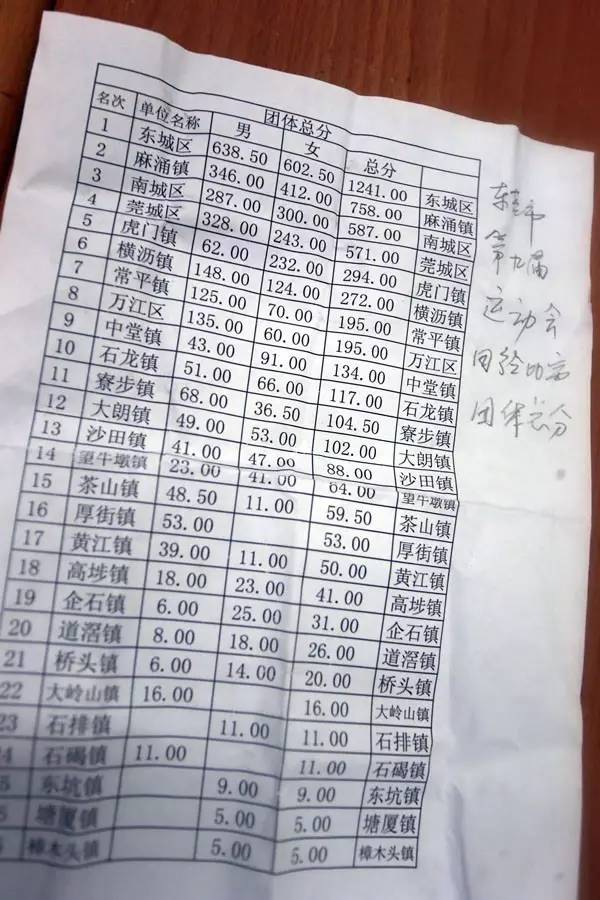 团体总分
名次 单位名称 男 女 总分
1 东城区 638.50 602.50 1241.00 东城区
2 麻涌镇 346.00 412.00 758.00 麻涌镇
3 南城区 287.00 300.00 587.00 南城区
4 莞城区 328.00 243.00 571.00 莞城区
5 虎门镇 62.00 232.00 294.00 虎门镇
6 横沥镇 148.00 124.00 272.00 横沥镇
7 常平镇 125.00 70.00 195.00 常平镇
8 万江区 135.00 60.00 195.00 万江区
9 中堂镇 43.00 91.00 134.00 中堂镇
10 石龙镇 51.00 66.00 117.00 石龙镇
11 寮步镇 68.00 36.50 104.50 寮步镇
12 大朗镇 49.00 53.00 102.00 大朗镇
13 沙田镇 41.00 47.00 88.00 沙田镇
14 望牛墩镇 23.00 41.00 64.00 望牛墩镇
15 茶山镇 48.50 11.00 59.50 茶山镇
16 厚街镇 53.00 53.00 厚街镇
17 黄江镇 39.00 11.00 50.00 黄江镇
18 高埗镇 18.00 23.00 41.00 高埗镇
19 企石镇 6.00 25.00 31.00 企石镇
20 道滘镇 8.00 18.00 26.00 道滘镇
21 桥头镇 6.00 14.00 20.00 桥头镇
22 大岭山镇 16.00 16.00 大岭山镇
23 石排镇 11.00 11.00 石排镇
24 石碣镇 11.00 11.00 石碣镇
东坑镇 9.00 9.00 东坑镇
塘厦镇 5.00 5.00 塘厦镇
樟木头镇 5.00 5.00 樟木头镇
东莞市
第九届
运动会
田径比赛
团体总分